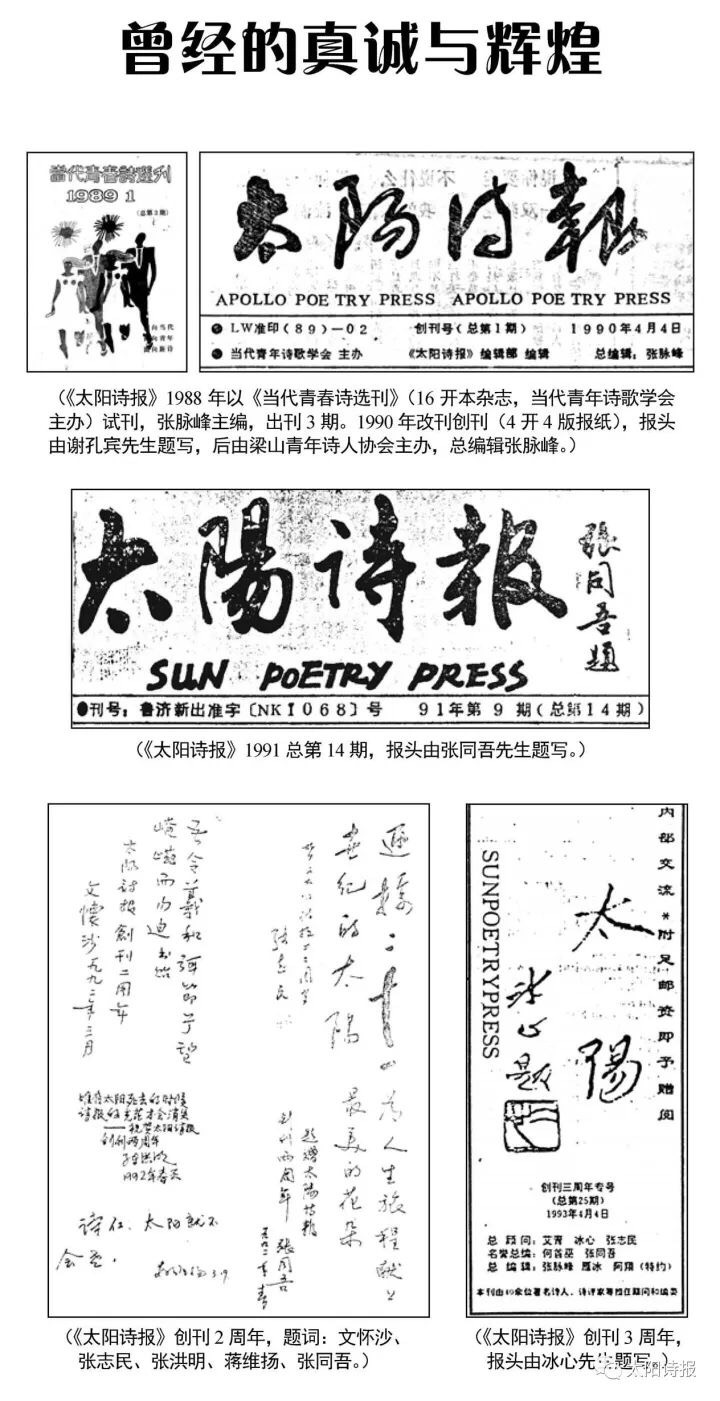 曾经的真诚与辉煌
當代青春詩選刊
1989 1
(总第3期)
向当代
向青年
向新诗
太陽诗報
APOLLO POE TRY PRESS APOLLO POE TRY PRESS
LW准印(89)-02 创刊号(总第1期) 1990年4月4日
当代青年诗歌学会 主办 《太阳诗报》编辑部 编辑 总编辑：张脉峰
（《太阳诗报》1988 年以《当代青春诗选刊》（16 开本杂志，当代青年诗歌学会
主办）试刊，张脉峰主编，出刊 3 期。1990 年改刊创刊（4 开 4 版报纸），报头
由谢孔宾先生题写，后由梁山青年诗人协会主办，总编辑张脉峰。）
太陽诗報
張同吾題
SUN POETRY PRESS
●刊号：鲁济新出准字〔NKI068〕号 91年第9期(总第14期)
（《太阳诗报》1991 总第 14 期，报头由张同吾先生题写。）
世纪的太陽
最美的花朵
为人生旅程献上
题赠太陽诗報
创刊两周年 張同吾
一九九二年春
張志民
吾令羲和弭節兮望
崦嵫而勿迫
太陽诗报創刊二周年
文懷沙一九九二年三月
唯有太阳死去的时候
诗报的光芒才会消失
——祝贺太阳诗报
创刊两周年
1992年春天
诗在、太阳就不
会
3.19
内部交流*附足邮资即予赠阅
太陽
冰心题
SUNPOETRYPRESS
创刊三周年专号
(总第25期)
1993年4月4日
总顾问：艾青 冰心 张志民
名誉总编：何首巫 张同吾
总编辑：张脉峰 雁冰 阿翔(特约)
本刊由40余位著名诗人、诗评家等担任顾问和编委
（《太阳诗报》创刊 2 周年，题词：文怀沙、
张志民、张洪明、蒋维扬、张同吾。）
（《太阳诗报》创刊 3 周年，
报头由冰心先生题写。）
太阳诗报